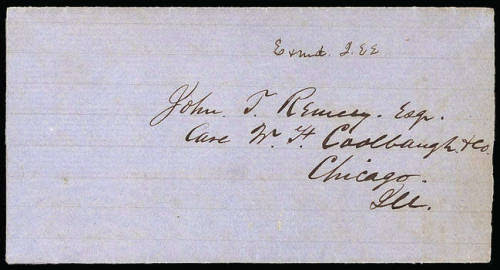 Exmd. J.EE
John. T. Remey. Esqr.
Care W. F. Coolbaugh. & Co.
Chicago.
Ill.